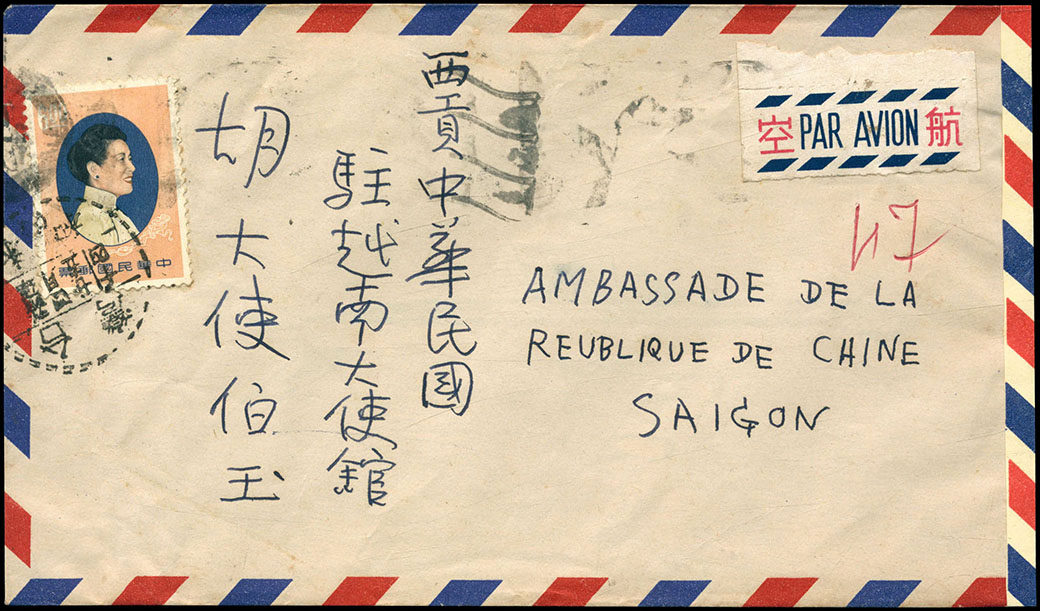 西貢中華民國
駐越南大使館
胡大使伯玉
空 PAR AVION 航
47
AMBASSADE DE LA
REUBLIQUE DE CHINE
SAIGON
票郵國民華中